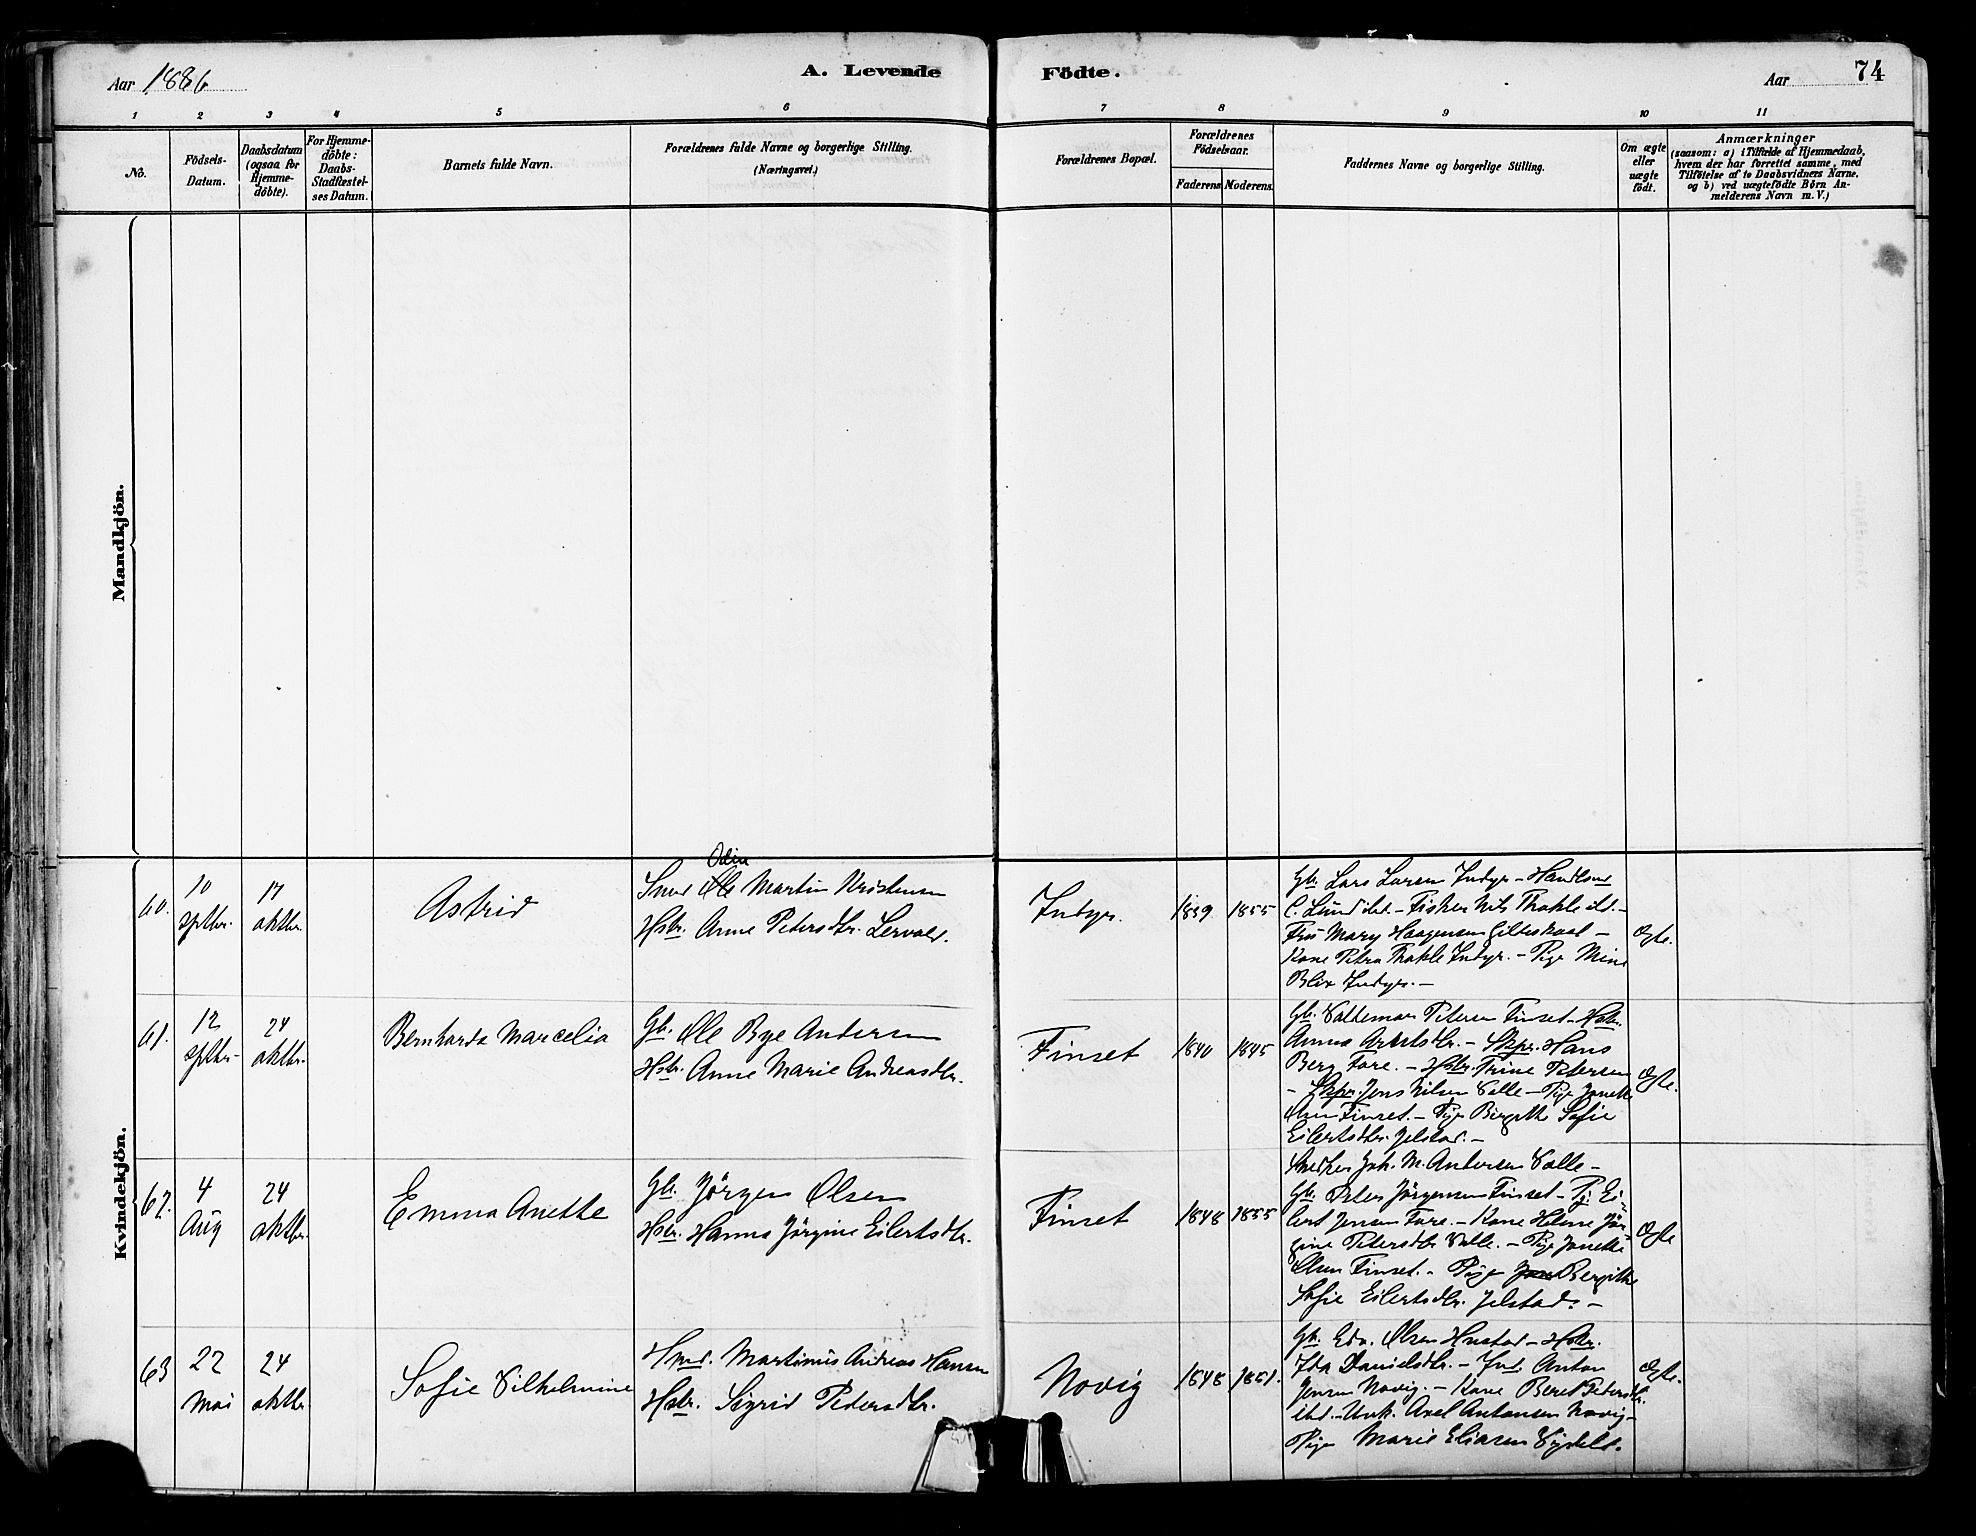 Aar 1886
A. Levende
Födte.
Aar
74
1 2 3 4 5 6 7 8 9 10 11
No.
Födsels-
Datum.
Daabsdatum
(ogsaa for
Hjemme-
döbte).
For Hjemme-
döbte:
Daabs-
Stadfæstel-
ses Datum.
Barnets fulde Navn.
Forældrenes fulde Navne og borgerlige Stilling.
(Næringsvei.)
Forældrenes Bopæl.
Forældrenes
Födselsaar.
Faderens. Moderens.
Faddernes Navne og borgerlige Stilling.
Om ægte
eller
uægte
födt.
Anmærkninger
(saasom: a) i Tilfælde af Hjemmedaab,
hvem der har forrettet samme, med
Tilföielse af to Daabsvidners Navne,
og b) ved uægtefödte Börn An-
melderens Navn m. V.)
Mandkjön.
Kvindekjön.
60.
10
sptbr.
17
oktbr.
Astrid
Odin
Smed Ole Martin Kristensen
Hstr. Anne Petersdtr. Lervold.
Indyr.
1859
1855
Gb. Lars Larsen Indyr - Handlsmd
C. Lund ibd. - Fisker Nils Thakle ibd. -
Fru Mary Haagensen Gildeskaal -
Kone Petra Thakle Indyr. - Pige Mine
Blix Indyr. -
Ægte.
61.
12
sptbr.
24
oktbr.
Bernharda Marcelia
Gb. Ole Bye Andersen
Hstr. Anne Marie Andreasdtr.
Finset
1840
1845
Gb. Valdemar Petersen Finset - Hstr.
Anna Arntsdtr. - Skpr. Hans
Berg Fore. - Hstr. Trine Petersen
- Skpr. Jens Nilsen Valle - Pige Janette
Olsen Finset. - Pige Birgitte Sofie
Eilertsdtr. Jelstad. -
Ægte.
62.
4
Aug
24
oktbr.
Emma Anette
Gb. Jörgen Olsen
Hstr. Hanna Jörgine Eilertsdtr.
Finset
1848
1855
Snedker Joh. M. Andersen Valle -
Gb. Peter Jörgensen Finset - Pg. Ei-
lert Jensen Fore. - Kone Helene Jör-
gine Petersdtr Valle. - Pige Janette
Olsen Finset. - Pige Bergitte
Sofie Eilertsdtr. Jelstad. -
Ægte
63
22
Mai
24
oktbr.
Sofie Vilhelmine
Hmd. Martinus Andreas Hansen
Hstr. Sigrid Pedersdtr.
Novig
1848
1851.
Gb. Edv. Olsen Hustad - Hstr.
Ida Danielsdtr. - Ind. Anton
Jensen Novig. - Kone Beret Petersdtr.
ibd. - Unk. Axel Antonsen Novig -
Pige Marie Eliasen
Ægte.